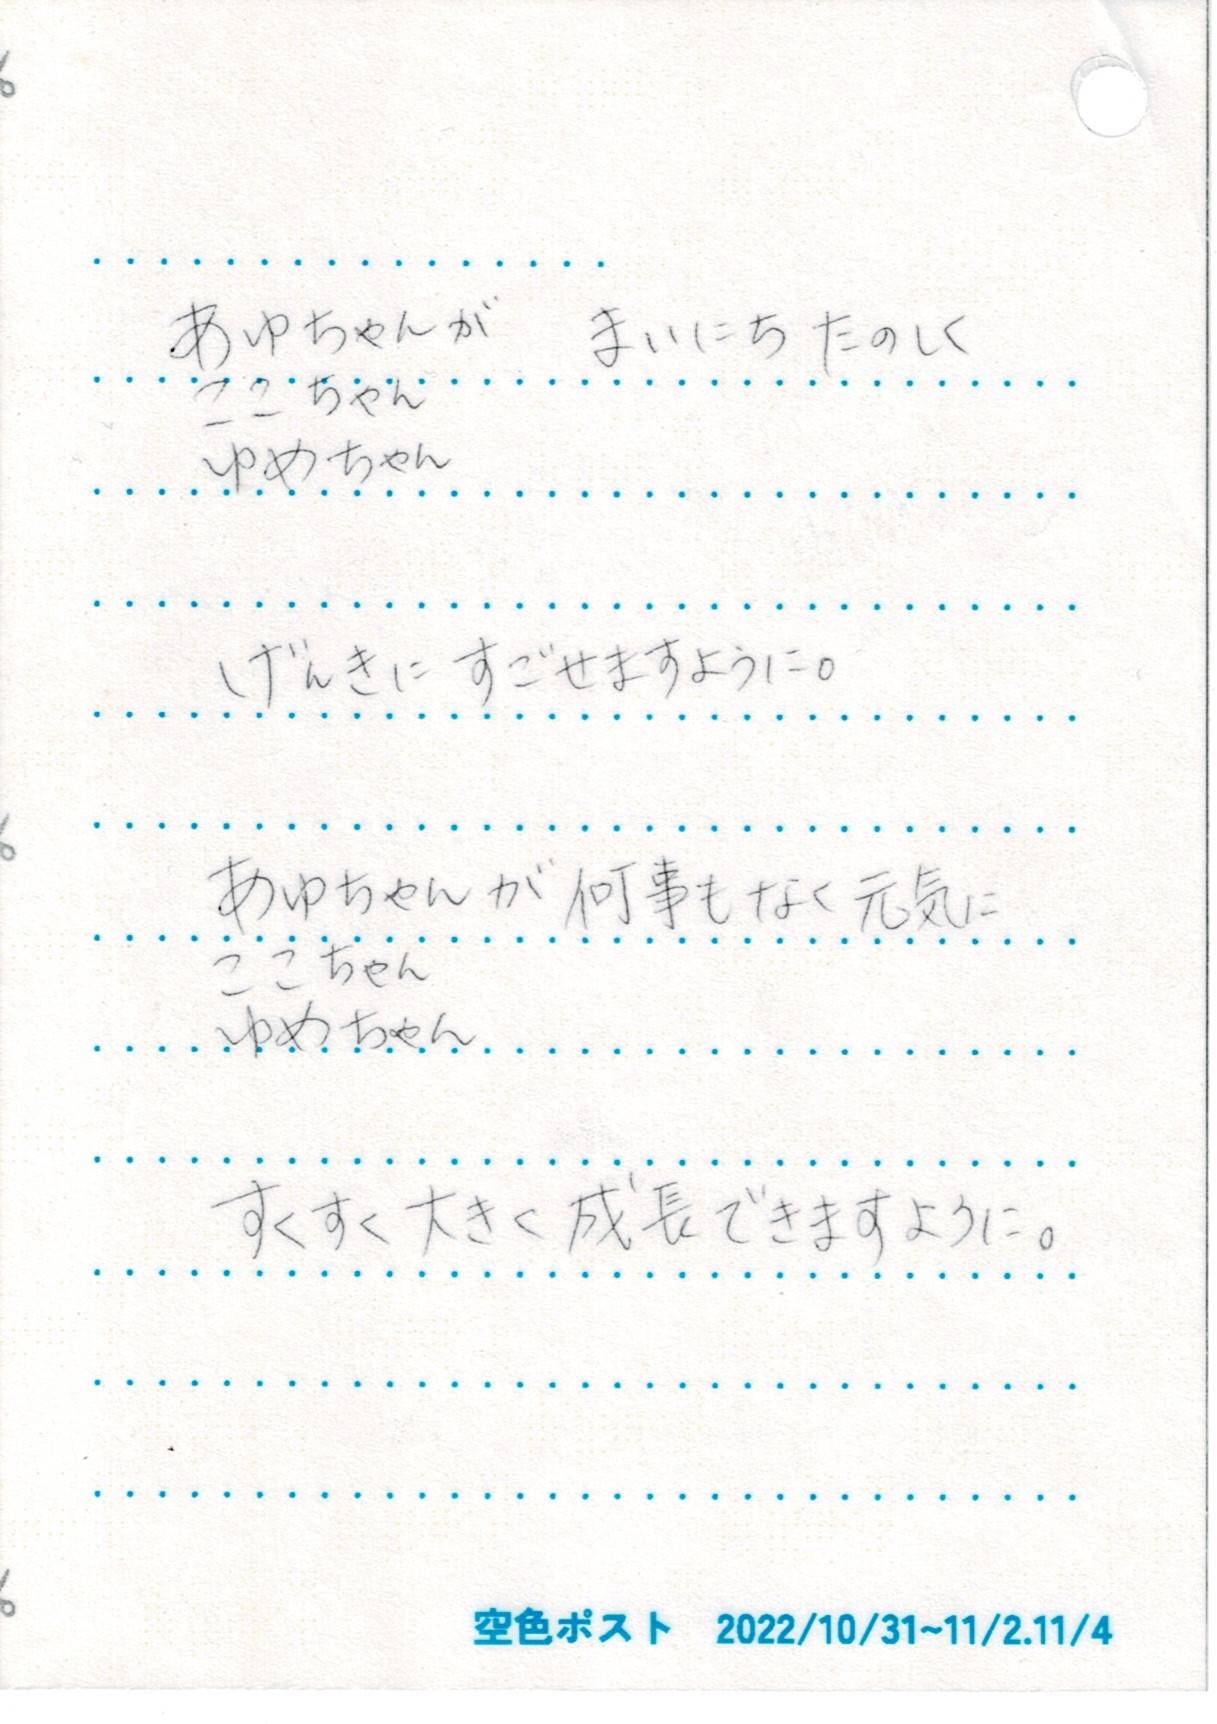 あゆちゃんが　まいにち たのしく
ここちゃん
ゆめちゃん
げんきに すごせますように。
あゆちゃんが 何事もなく 元気に
ここちゃん
ゆめちゃん
すくすく 大きく 成長できますように。
空色ポスト　2022/10/31~11/2.11/4